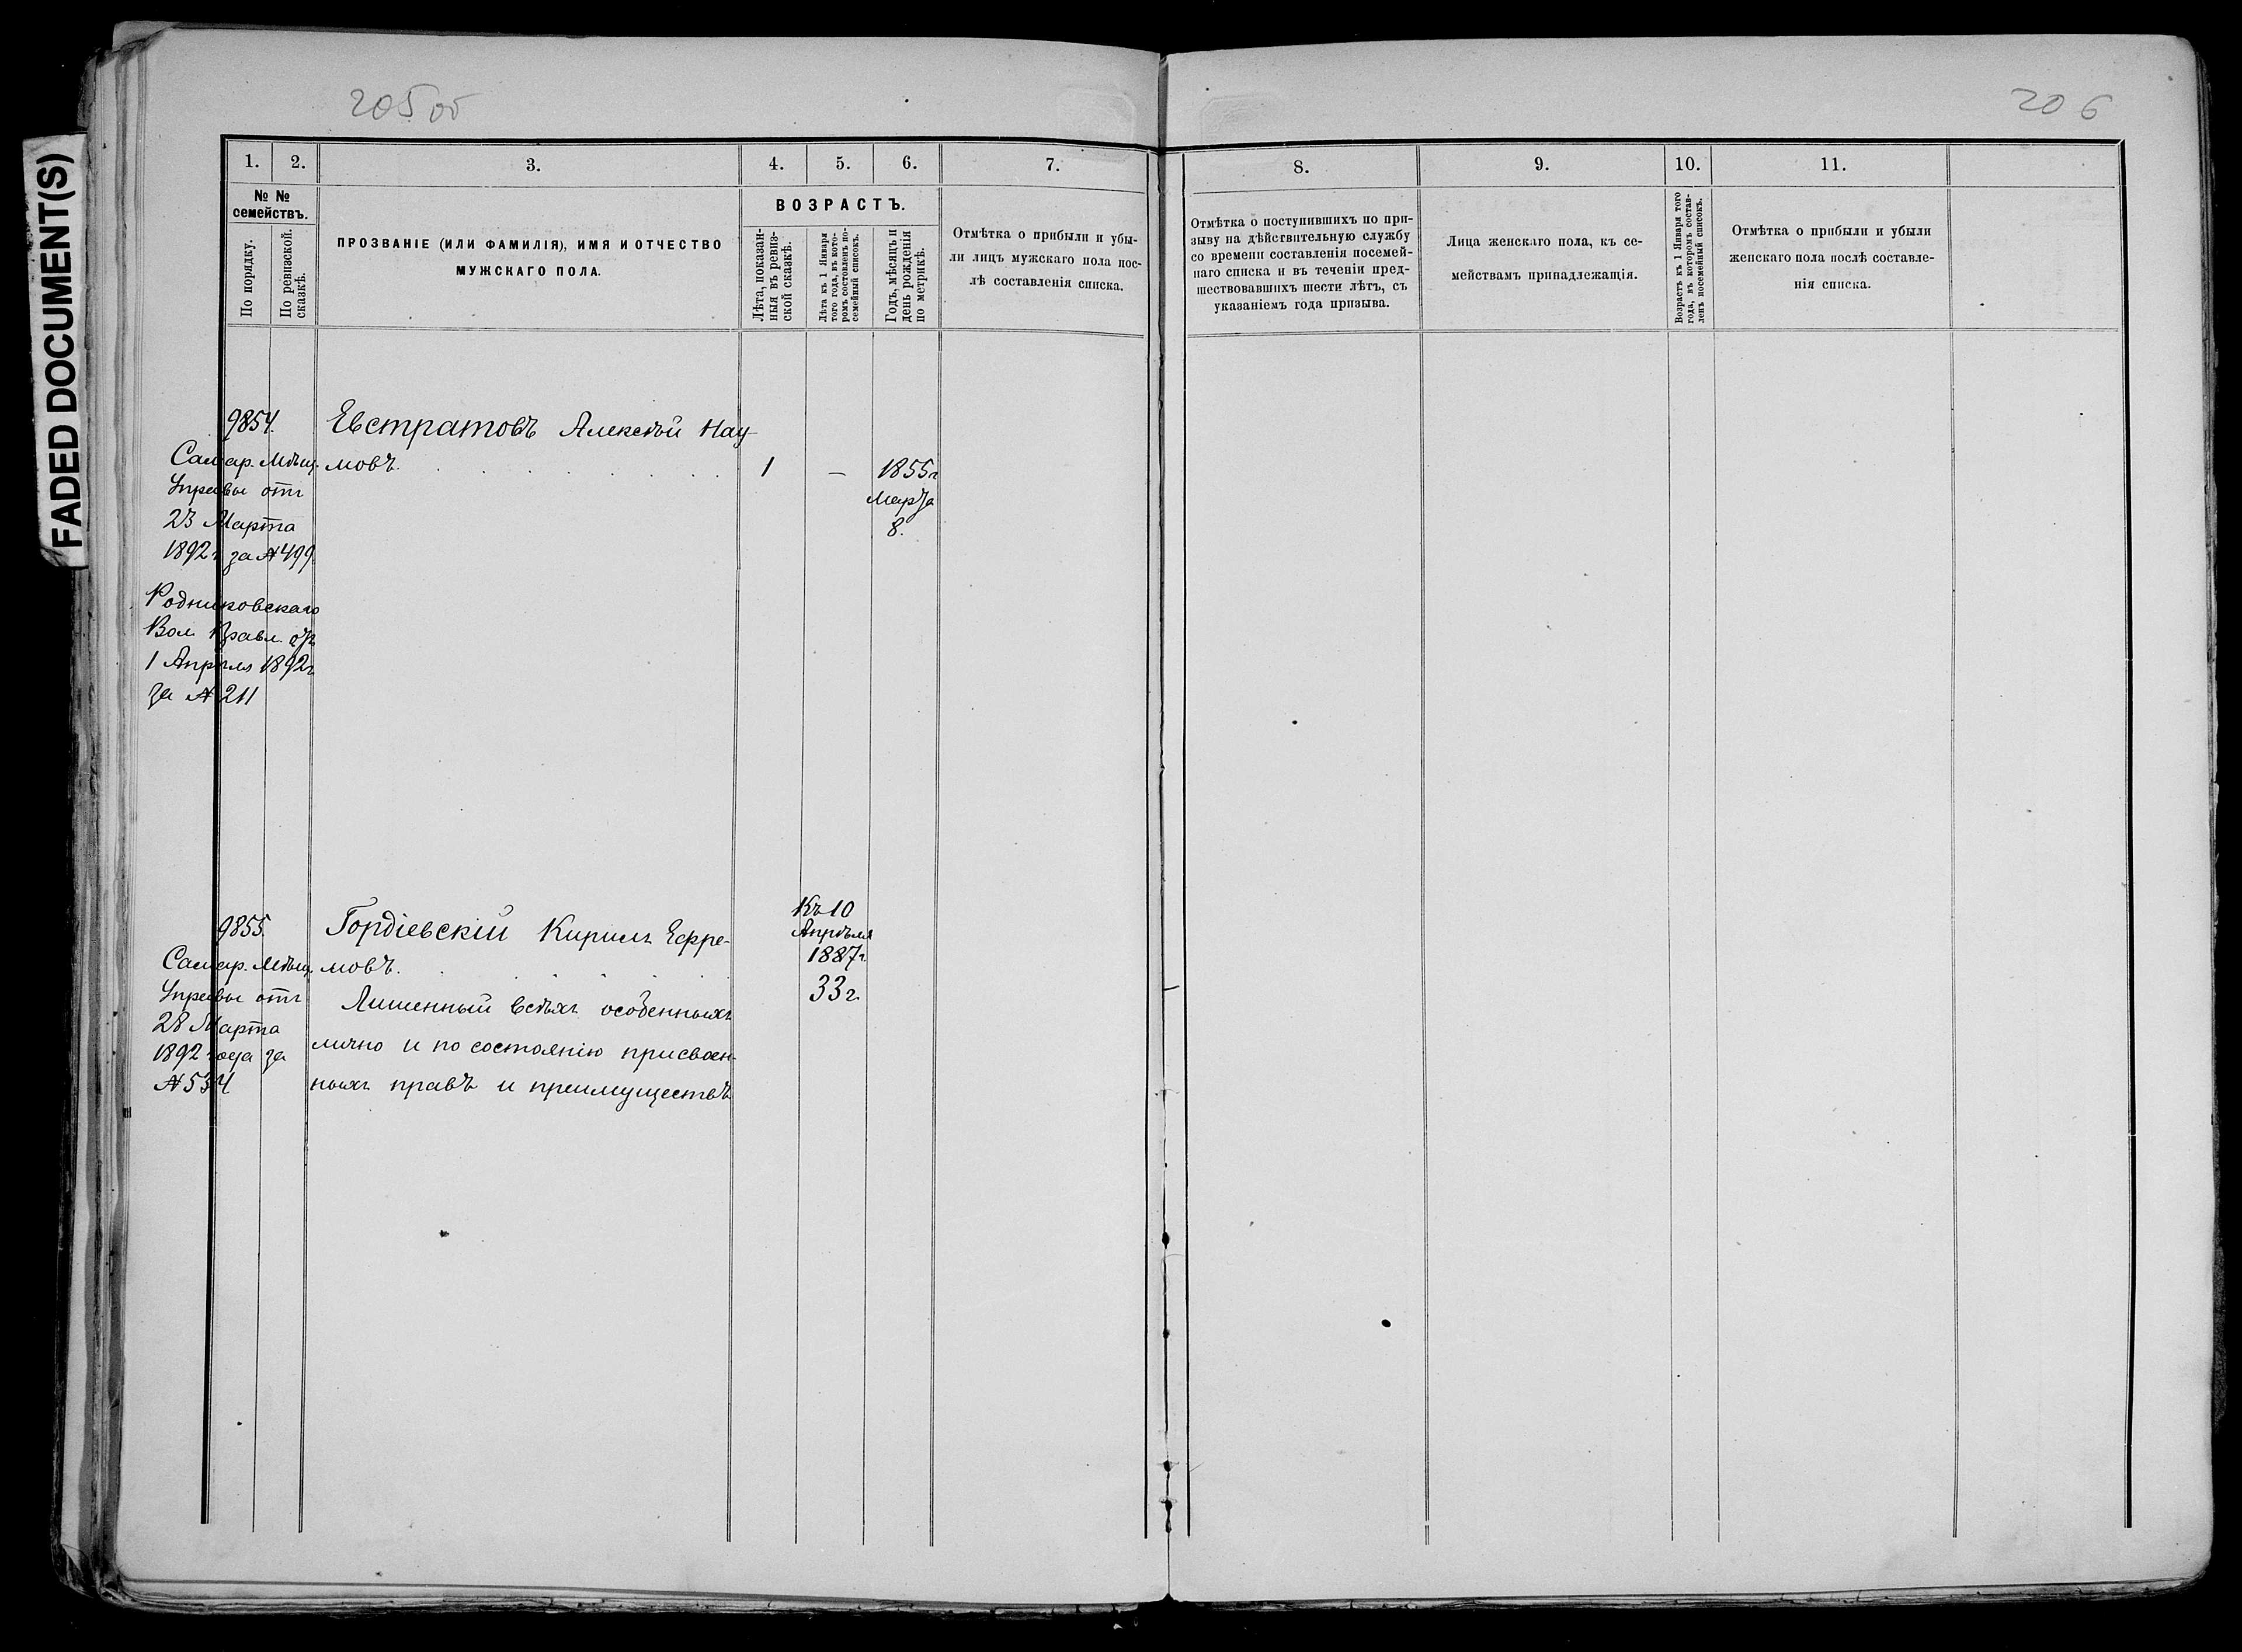 FADED DOCUMENT(S)
205об
206
1.
2.
3.
4.
5.
6.
7.
8.
9.
10.
11.
№ №
семействъ.
По порядку.
По ревизской
сказкѣ.
ПРОЗВАНІЕ (ИЛИ ФАМИЛІЯ), ИМЯ И ОТЧЕСТВО
МУЖСКАГО ПОЛА.
ВОЗРАСТЪ.
Лѣта, показан-
ныя въ ревиз-
ской сказкѣ.
Лѣта къ 1 Января
того года, въ кото-
ромъ составленъ по-
семейный списокъ.
Годъ, мѣсяцъ и
день рожденія
по метрикѣ.
Отмѣтка о прибыли и убы-
ли лицъ мужскаго пола пос-
лѣ составленія списка.
Отмѣтка о поступившихъ по при-
зыву на дѣйствительную службу
со времени составленія посемей-
наго списка и въ теченіи пред-
шествовавшихъ шести лѣтъ, съ
указаніемъ года призыва.
Лица женскаго пола, къ се-
мействамъ принадлежащія.
Возрастъ къ 1 Января того
года, въ которомъ состав-
ленъ посемейный списокъ.
Отмѣтка о прибыли и убыли
женскаго пола послѣ составле-
нія списка.
9854.
Самар. Мѣщ.
Управы отъ
23 Марта
1892 г. за № 499.
Родниковскаго
Вол. Правл. отъ
1 Апрѣля 1892 г.
за № 211
Евстратовъ Алексѣй Нау-
мовъ.
1
—
1855 г.
Марта
8.
9855.
Самар. Мѣщ.
Управы отъ
28 Марта
1892 года за
№ 534
Гордіевскій Кирилъ Ефре-
мовъ.
Лишенный всѣхъ особенныхъ
лично и по состоянію присвоен-
ныхъ правъ и преимуществъ
Къ 10
Апрѣля
1887 г.
33 г.